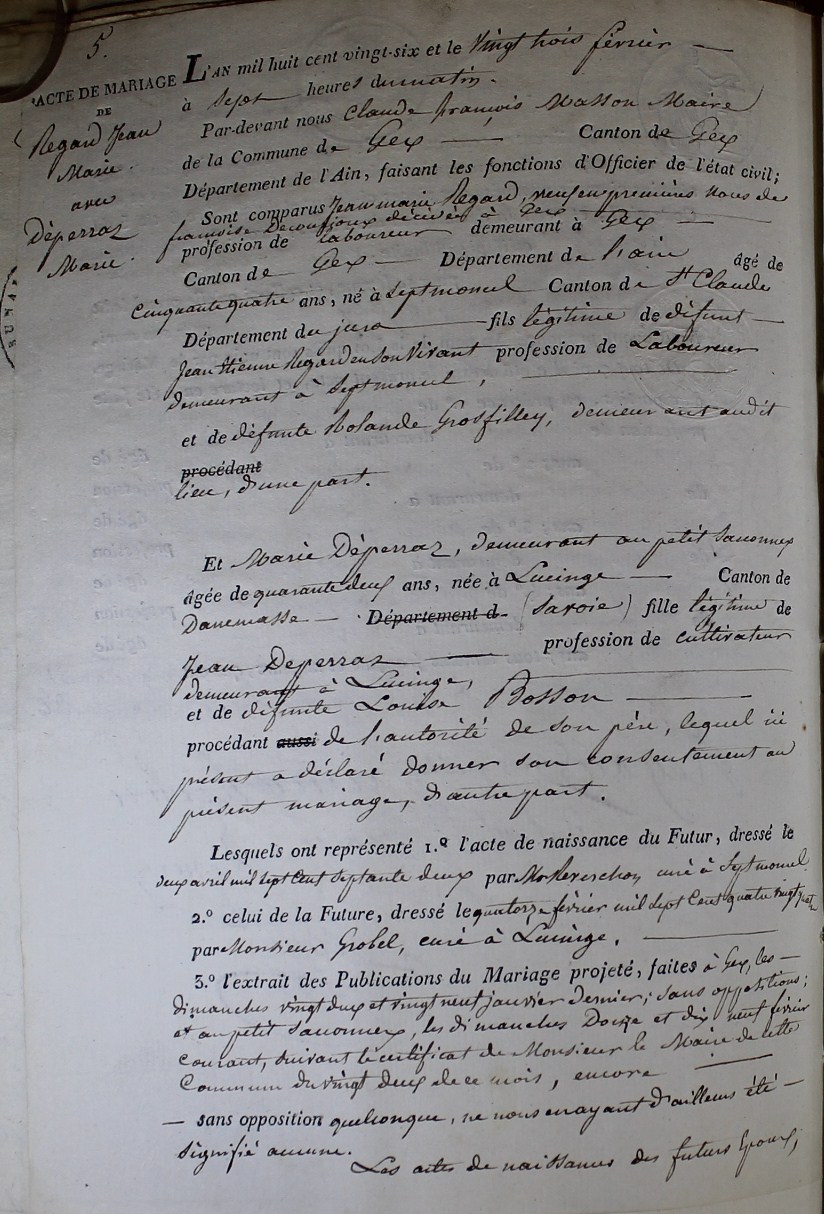 5.
ACTE DE MARIAGE
DE
Regard Jean
Marie.
avec
Déperraz
Marie.
L'AN mil huit cent vingt-six et le vingt trois février
à sept heures du matin.
Par-devant nous Claude françois Masson Maire
de la Commune de Gex Canton de Gex
Département de l'Ain, faisant les fonctions d'Officier de l'état civil;
Sont comparus Jean marie Regard, veuf en premières noces de
françoise décédée à Gex
profession de laboureur demeurant à Gex
Canton de Gex Département de l'ain âgé de
Cinquante quatre ans, né à Septmoncel Canton de St Claude
Département du jura fils légitime de défunt
Jean Etienne Regard en son vivant profession de Laboureur
demeurant à Septmoncel,
et de défunte Rolande Grosfilley, demeurant audit
procédant
lieu, d'une part.
Et Marie Déperraz, demeurant au petit Sauonnex
âgée de quarante deux ans, née à Lucinge Canton de
Danemasse Département d (Savoie) fille légitime de
Jean Deperraz profession de cultivateur
demeurant à Lucinge,
et de défunte Louise Bosson
procédant aussi de l'autorité de son père, lequel ici
présent a déclaré donner son consentement au
présent mariage, d'autre part.
Lesquels ont représenté 1.º l'acte de naissance du Futur, dressé le
deux avril mil sept cent septante deux par Mr curé à Septmoncel
2.º celui de la Future, dressé le quatorze février mil sept Cent quatre vingt
par Monsieur Grobel, curé à Lucinge.
3.º l'extrait des Publications du Mariage projeté, faites à Gex, les
dimanches vingt deux et vingt neuf janvier dernier, sans oppositions;
et au petit Sauonnex, les dimanches Douze et dix neuf février
courant, suivant le certificat de Monsieur le Maire de cette
Commune du vingt deux de ce mois, encore
— sans opposition quelconque, ne nous en ayant d'ailleurs été —
signifié aucune.
Les actes de naissances des futurs Epoux,